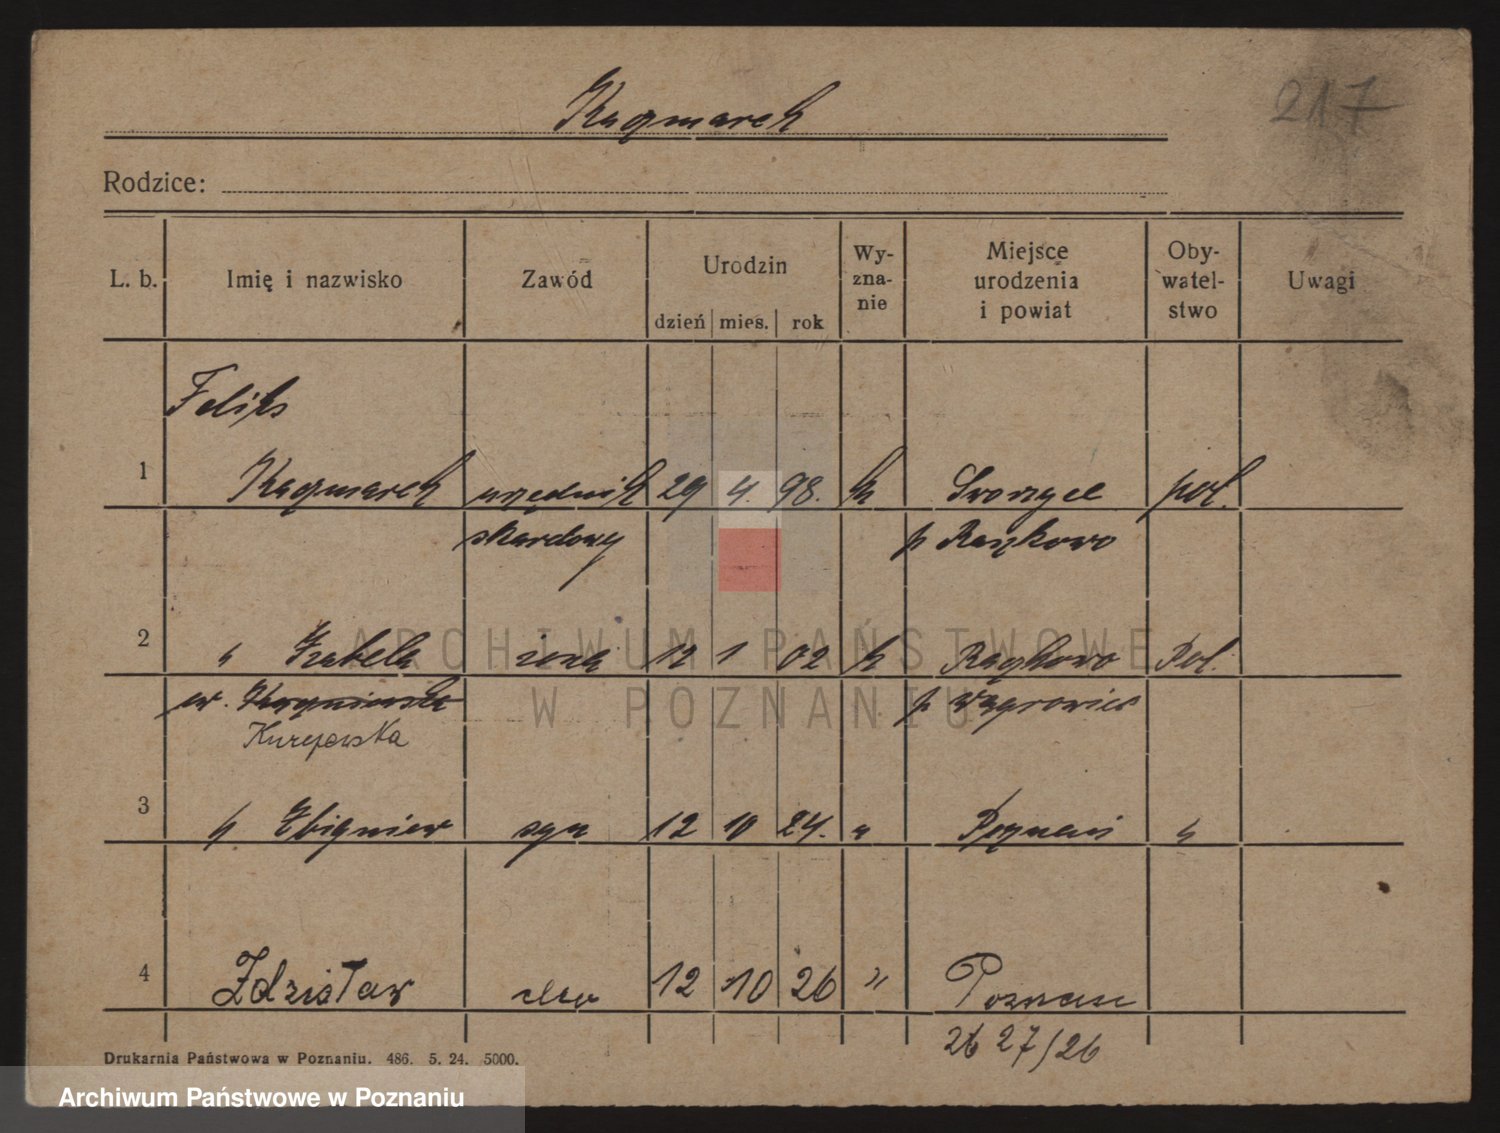 217
Kaczmarek
Rodzice:
L. b. Imię i nazwisko Zawód Urodzin Wy-zna-nie Miejsce urodzenia i powiat Oby-watel-stwo Uwagi
dzień mies. rok
Feliks
1 Kaczmarek urzędnik 29 4. 98. k pol.
skarbowy p
2 " Izabela żona 12 1 02 k Pol.
ur. p Wągrowiec
Kurejewska
3 " Zbigniew syn 12 10 24. " Poznań "
4 Zdzisław 12 10 26 " Poznań
26 27/26
Drukarnia Państwowa w Poznaniu. 486. 5. 24. 5000.
ARCHIWUM PAŃSTWOWE
W POZNANIU
Archiwum Państwowe w Poznaniu